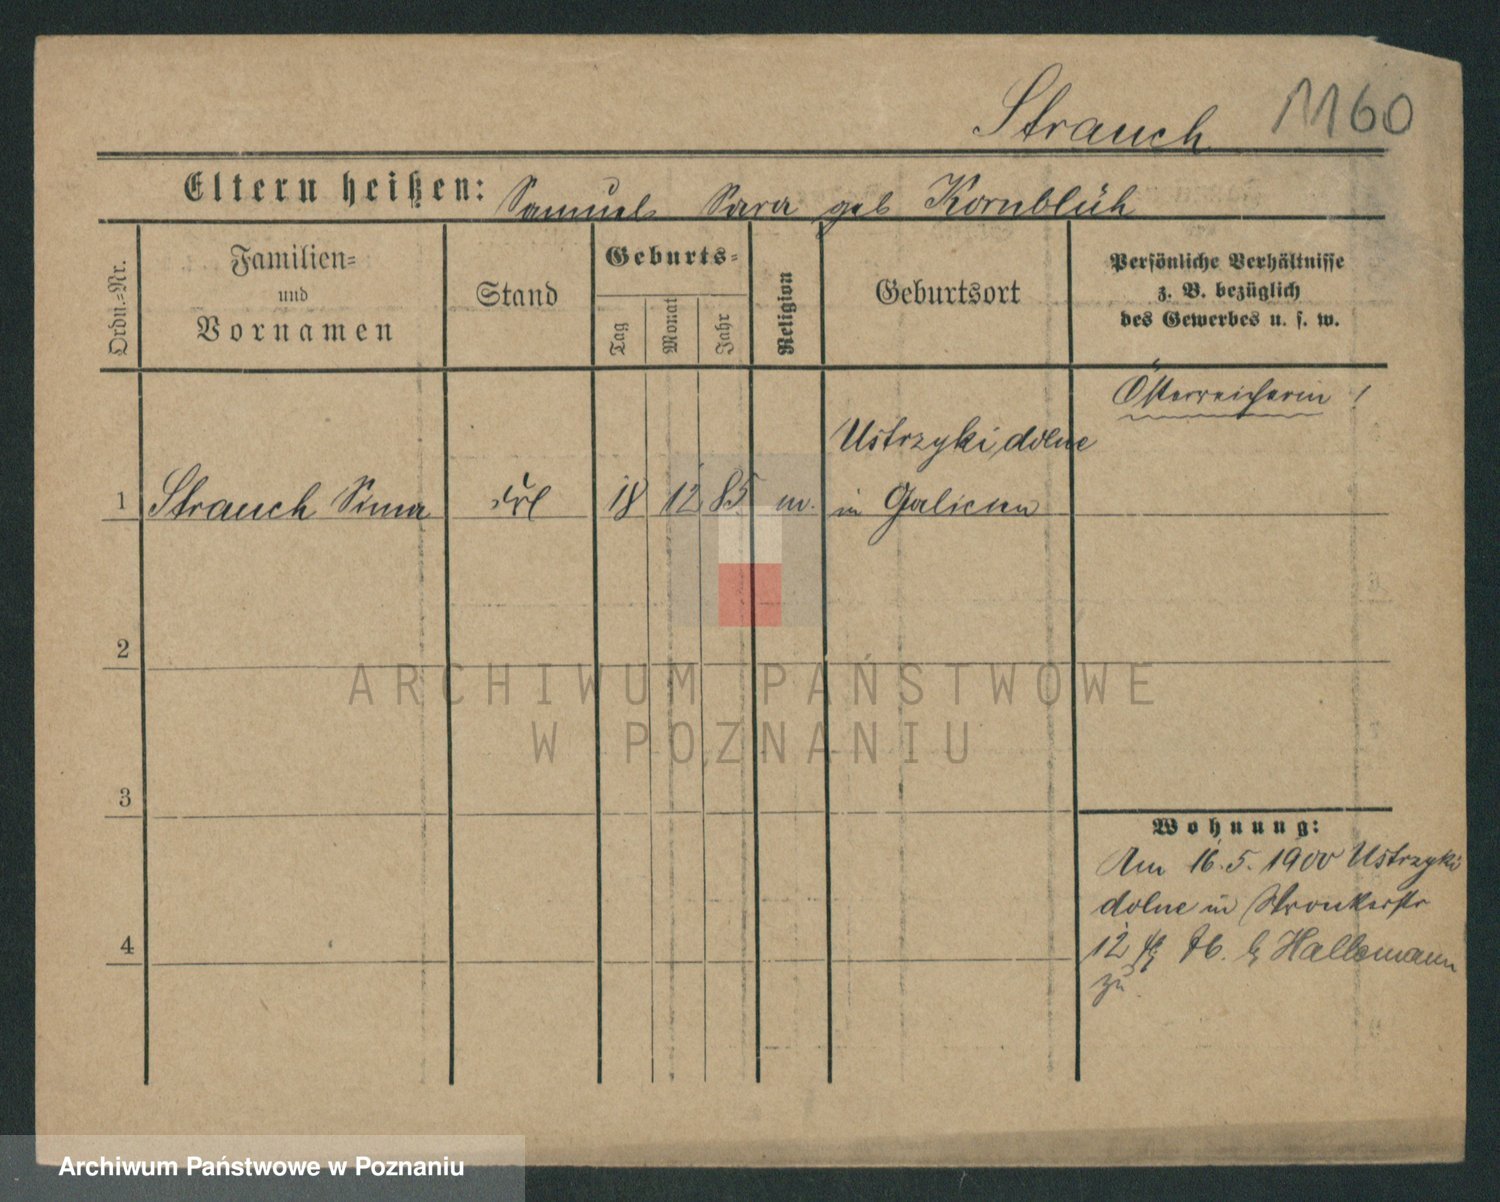 Strauch 1160
Eltern heißen: Samuel Sara geb Kornblüh
Ordn.-Nr.
Familien-
und
Vornamen
Stand
Geburts-
Tag
Monat
Jahr
Religion
Geburtsort
Persönliche Verhältnisse
z. B. bezüglich
des Gewerbes u. s. w.
Österreicherin !
Ustrzyki dolne
1 Strauch Sima 18 12 85 m. in Galicien
2
3
4
ARCHIWUM PAŃSTWOWE
W POZNANIU
Wohnung:
Am 16. 5. 1900 Ustrzyki
dolne in Wronkerstr
12 b Hallemann
zu
Archiwum Państwowe w Poznaniu